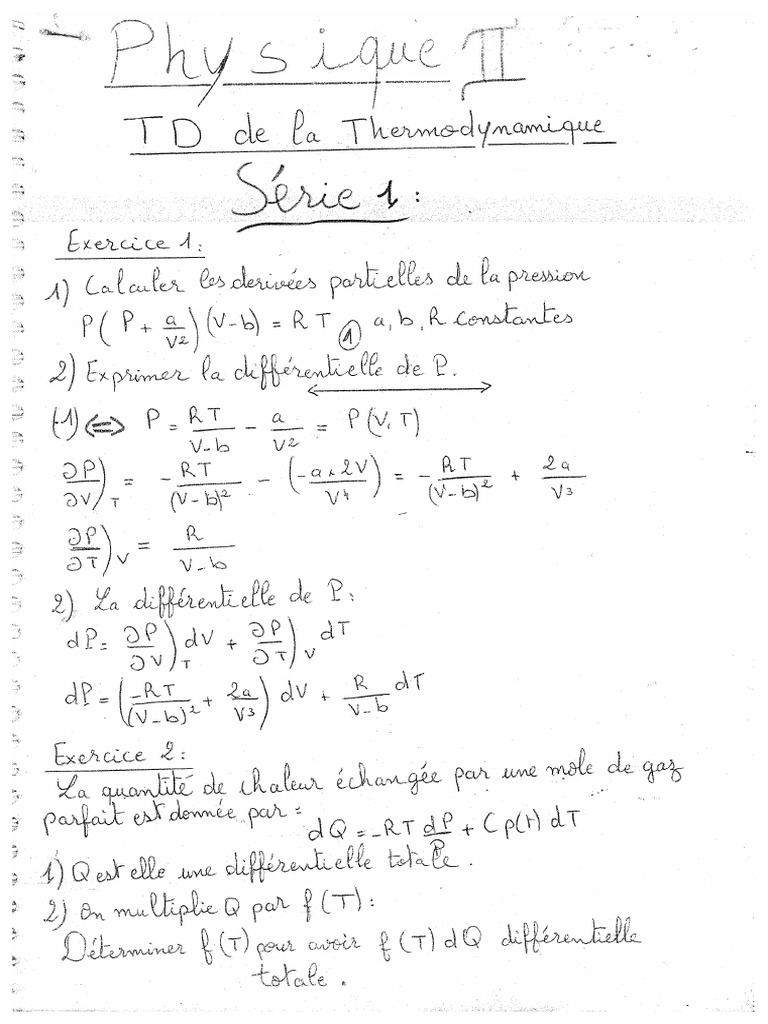 Physique II
TD de la Thermodynamique
Série 1 :
Exercice 1 :
1) Calculer les derivées partielles de la pression
P(P + a/V²)(V-b) = RT ① a, b, R constantes
2) Exprimer la différentielle de P.
(1) ⇔ P = RT/(V-b) - a/V² = P(V, T)
∂P/∂V)_T = -RT/(V-b)² - (-a×2V/V⁴) = -RT/(V-b)² + 2a/V³
∂P/∂T)_V = R/(V-b)
2) La différentielle de P :
dP = ∂P/∂V)_T dV + ∂P/∂T)_V dT
dP = (-RT/(V-b)² + 2a/V³) dV + R/(V-b) dT
Exercice 2 :
La quantité de chaleur échangée par une mole de gaz
parfait est donnée par =
dQ = -RT dP/P + Cp(T) dT
1) Q est elle une différentielle totale.
2) On multiplie Q par f(T) :
Déterminer f(T) pour avoir f(T) dQ différentielle
totale.